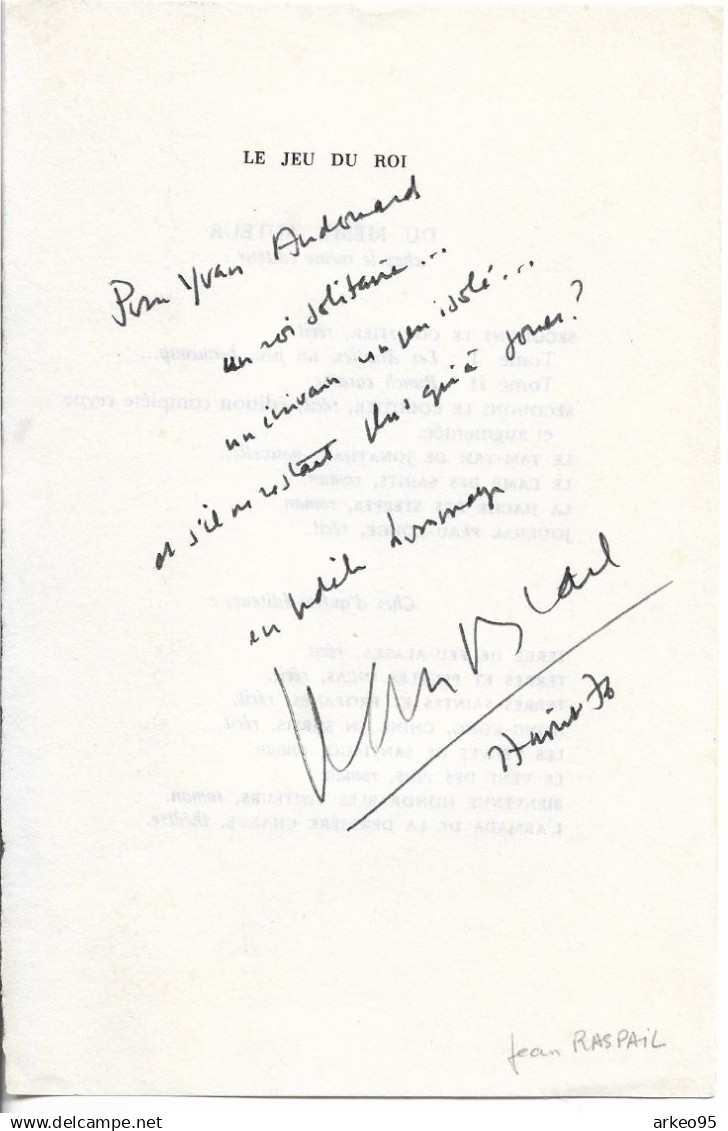 LE JEU DU ROI
Pour Yvan Audouard
un roi solitaire...
un écrivain un peu isolé...
et s'il ne restait plus qu'à jouer?
en fidèle hommage
Jean Raspail
76
Jean RASPAIL
DU MÊME AUTEUR
chez le même éditeur :
SECOUONS LE COCOTIER, récit.
Tome I : Les Antilles, un peu, beaucoup...
Tome II : Punch caraïbe.
SECOUONS LE COCOTIER, récit, édition complète revue
et augmentée.
LE TAM-TAM DE JONATHAN, nouvelles.
LE CAMP DES SAINTS, roman.
LA HACHE DES STEPPES, roman.
JOURNAL PEAU-ROUGE, récit.
Chez d'autres éditeurs :
TERRE DE FEU-ALASKA, récit.
TERRES ET PEUPLES INCAS, récit.
TERRES SAINTES ET PROFANES, récit.
HONG-KONG, CHINE EN SURSIS, récit.
LES VEUVES DE SANTIAGO, roman.
LE VENT DES PINS, roman.
BIENVENUE HONORABLES VISITEURS, roman.
L'ARMADA DE LA DERNIÈRE CHANCE, théâtre.
delcampe.net
arkeo95